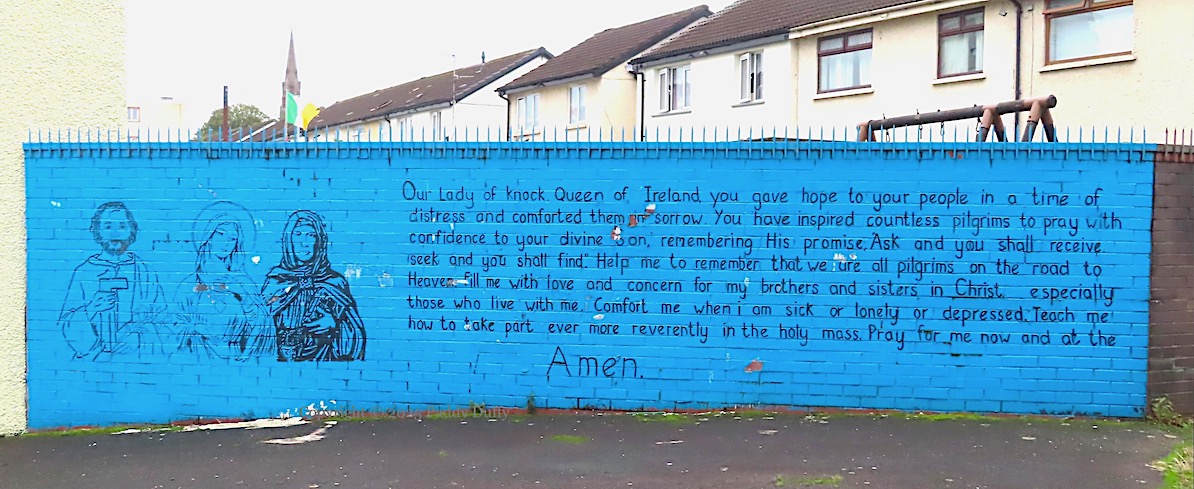 Our Lady of Knock Queen of Ireland you gave hope to your people in a time of
distress and comforted them in sorrow. You have inspired countless pilgrims to pray with
confidence to your divine son, remembering His promise, Ask and you shall receive,
seek and you shall find". Help me to remember that we are all pilgrims on the road to
Heaven. Fill me with love and concern for my brothers and sisters in Christ, especially
those who live with me. Comfort me when i am sick or lonely or depressed. Teach me
how to take part ever more reverently in the holy mass. Pray for me now and at the
Amen.
Paddy Duffy